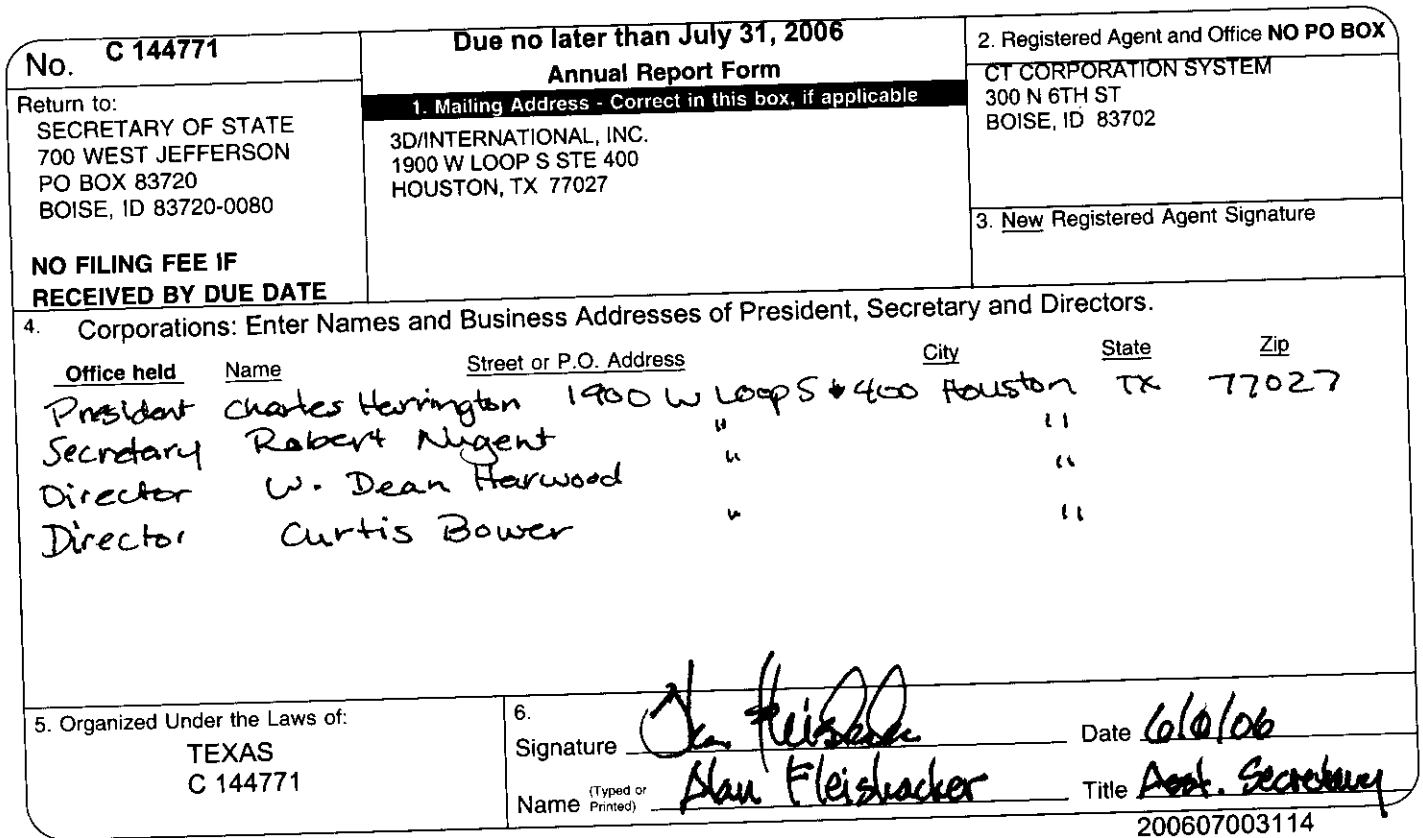 No. C 144771
Return to:
SECRETARY OF STATE
700 WEST JEFFERSON
PO BOX 83720
BOISE, ID 83720-0080
NO FILING FEE IF
RECEIVED BY DUE DATE
Due no later than July 31, 2006
Annual Report Form
1. Mailing Address - Correct in this box, if applicable
3D/INTERNATIONAL, INC.
1900 W LOOP S STE 400
HOUSTON, TX 77027
2. Registered Agent and Office NO PO BOX
CT CORPORATION SYSTEM
300 N 6TH ST
BOISE, ID 83702
3. New Registered Agent Signature
4. Corporations: Enter Names and Business Addresses of President, Secretary and Directors.
Office held Name Street or P.O. Address City State Zip
President Charles Harrington 1900 W Loop S #400 Houston TX 77027
Secretary Robert Nugent " "
Director W. Dean Harwood " "
Director Curtis Bower " "
5. Organized Under the Laws of:
TEXAS
C 144771
6.
Signature Alan Fleishacker Date
Name (Typed or Printed) Alan Fleishacker Title Asst. Secretary
200607003114